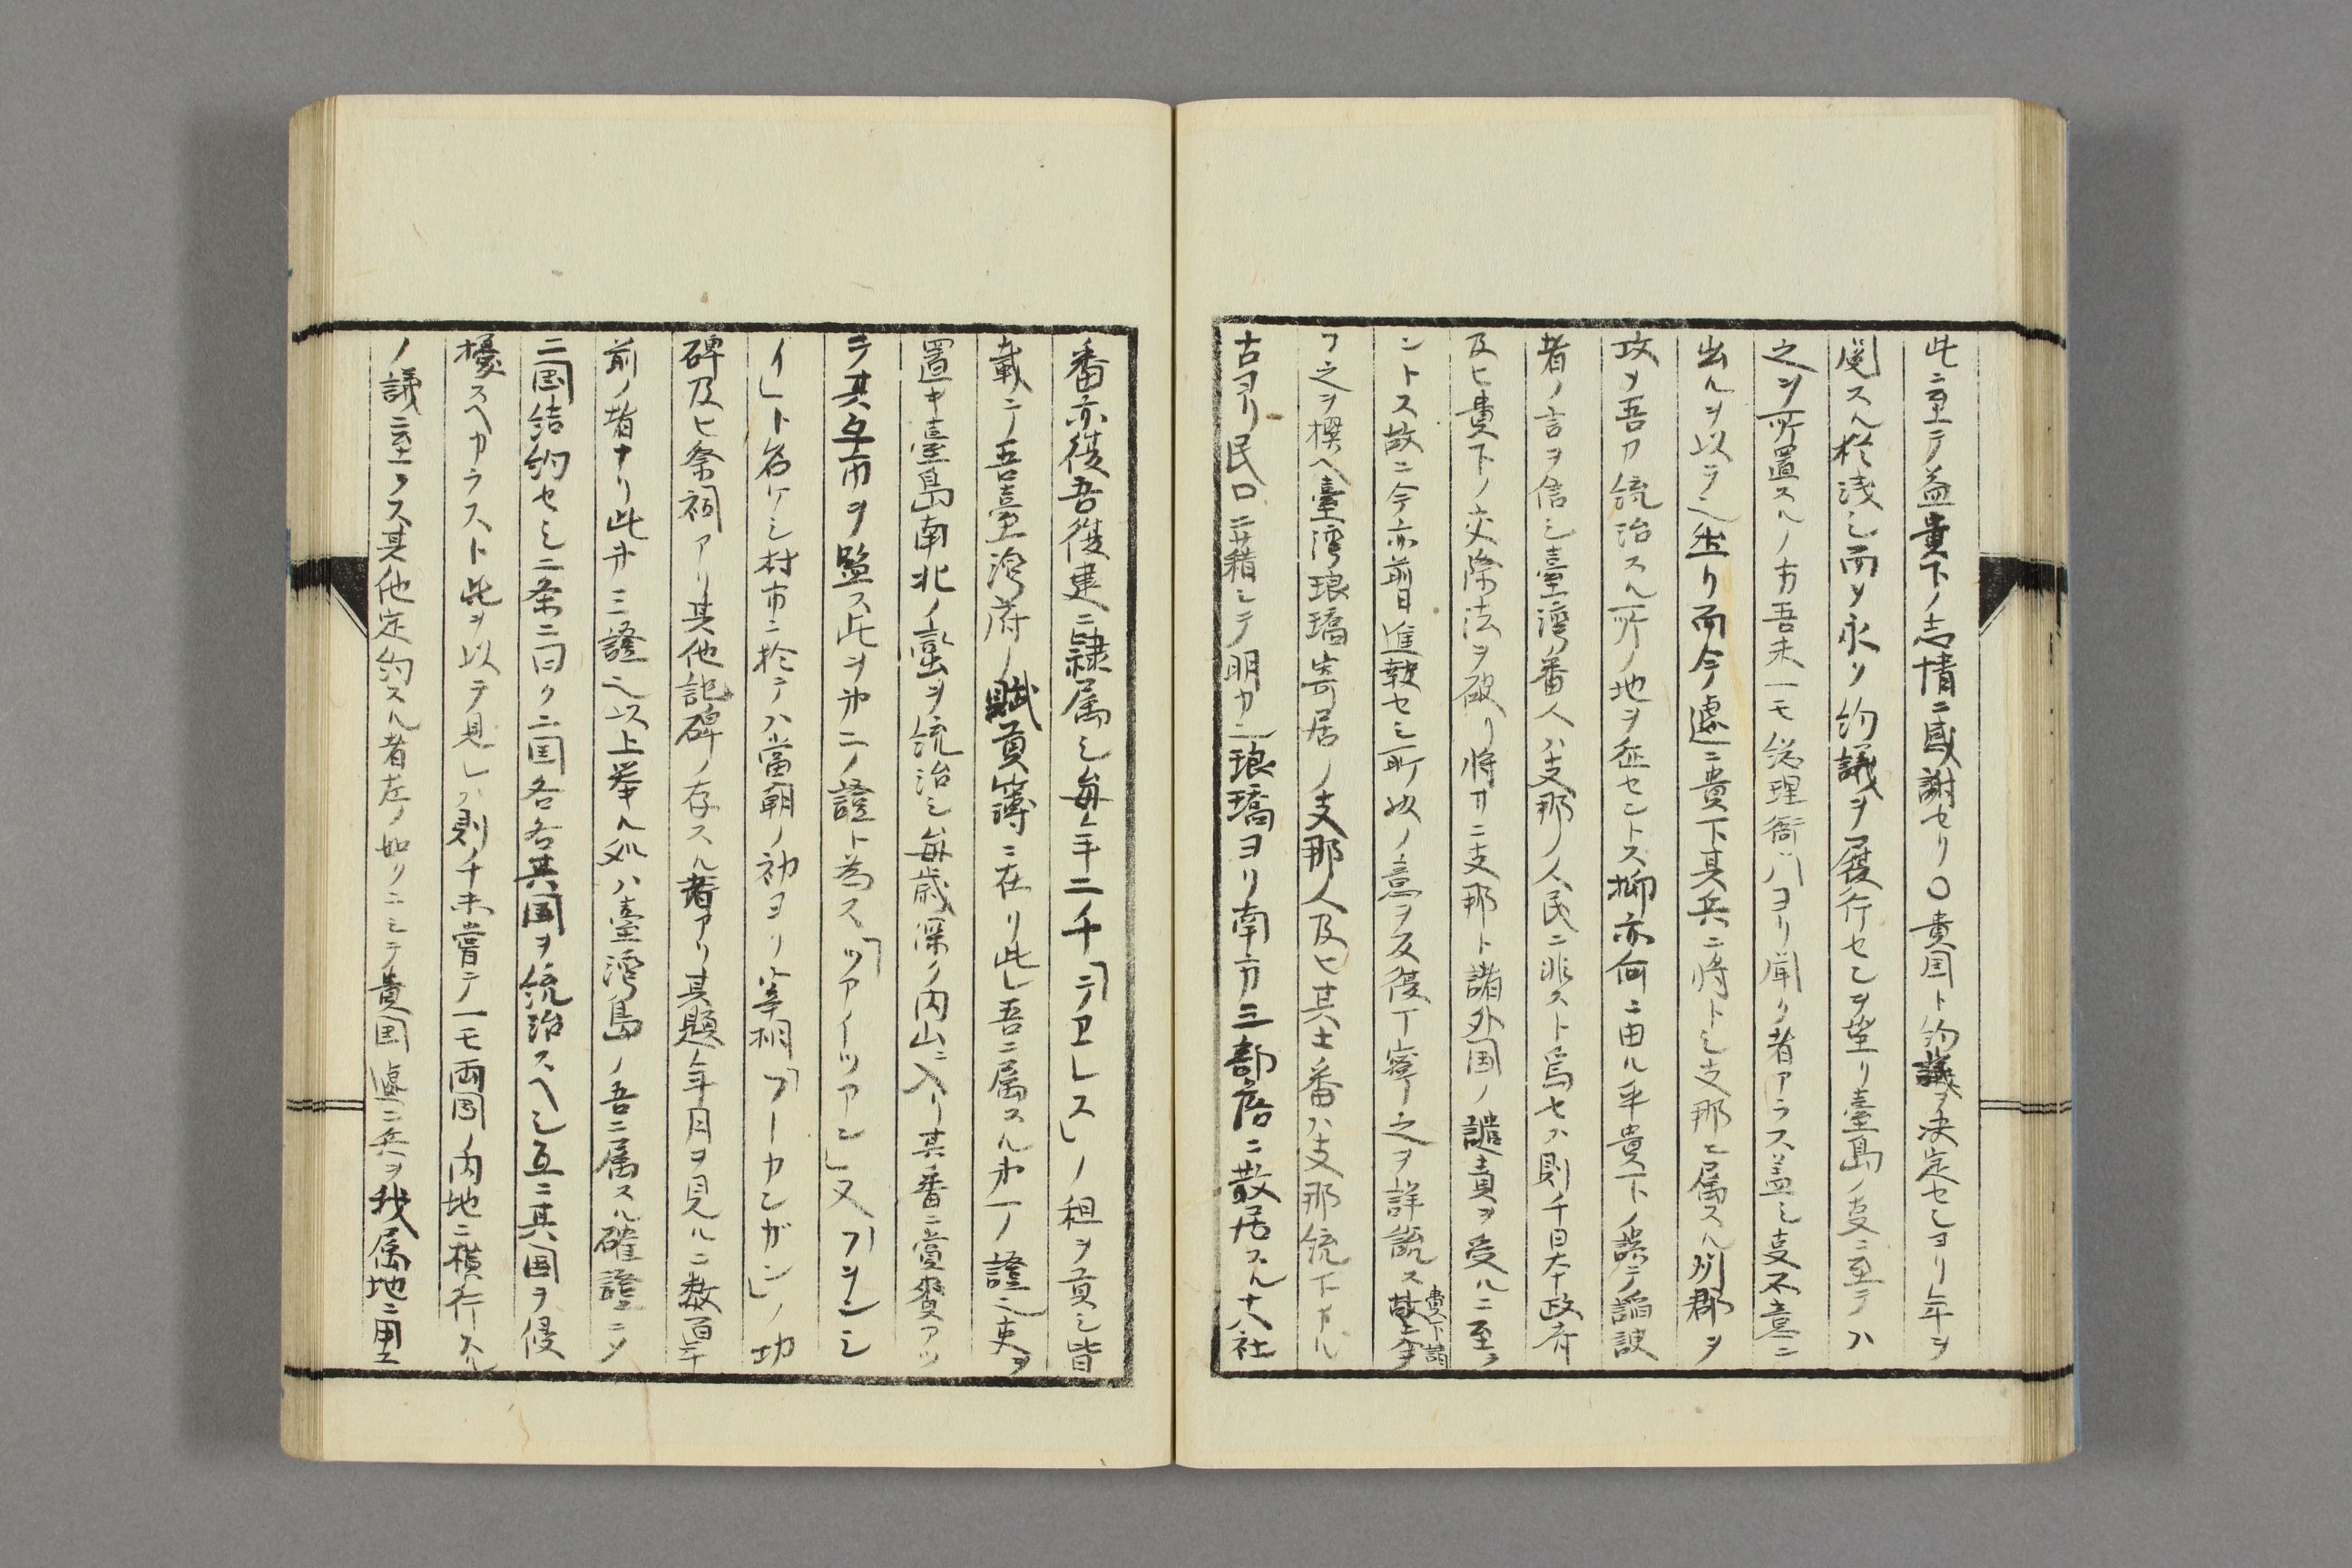 此ニ至テ益貴下ノ志情ニ感謝セリ〇貴国ト約議ヲ決定セシヨリ年ヲ
閲スル於浅シ而ソ永ク約議ヲ履行セシヲ望リ臺島ノ支ニ至テハ
之ヲ所置スルノ方吾未一モ総理衙門ヨリ聞ク者アラス蓋シ支不意ニ
出ルヲ以テ之 リ而今遽ニ貴下其兵ニ将トシ支那ニ属スル州郡ヲ
攻メ吾カ統治スル所ノ地ヲ征セントス抑亦何ニ由ル乎貴下ノ誤テ謟諛
者ノ言ヲ信シ臺湾番人ハ支那ノ人民ニ非スト為セハ則チ日本政府
及ヒ貴下ノ交際法ヲ破リ将サニ支那ト諸外国ノ譴責ヲ受ルニ至ラ
ントス故ニ今亦前日進報セシ所以ノ意ヲ反復丁寧之ヲ詳説ス貴下請
フ之ヲ 臺湾琅𤩝寄居ノ支那人及ヒ其土番ハ支那統下ナル
古ヨリ民口ニ籍シテ明カ 琅𤩝ヨリ南方三部落ニ散居スル十八社
番亦従吾復建ニ隷属シ毎年二千「テヱレス」ノ租ヲ貢シ皆
載ニ吾臺湾府ノ賦貢簿ニ在リ此レ吾ニ属スル第一ノ證之吏ヲ
置キ臺島南北ノ蛮ヲ統治シ毎歳深ク内山ニ入リ其番ニ賞賚アツ
テ其互市ヲ監ス此ヲ第二ノ證ト為ス「ツアイツアン」又「フヲンシ
イ」ト名ケシ村市ニ於テハ當朝ノ初ヨリ宰相「フーカンガン」ノ功
碑及ヒ祭祠アリ其他記碑ノ存スル者アリ其題年月ヲ見ルニ数百年
前ノ者ナリ此第三證之以上挙ル処ハ臺湾島ノ吾ニ属スル確證ニメ
二国結約セシ二条ニ曰ク二国各各其国ヲ統治スヘシ互ニ其国ヲ侵
擾スヘカラスト此ヲ以テ見レハ則チ未嘗テ一モ両国ノ内地ニ横行スル
ノ議ニ至ラス其他定約スル者左ノ如クニシテ貴国遽ニ兵ヲ我属地ニ用ヱ